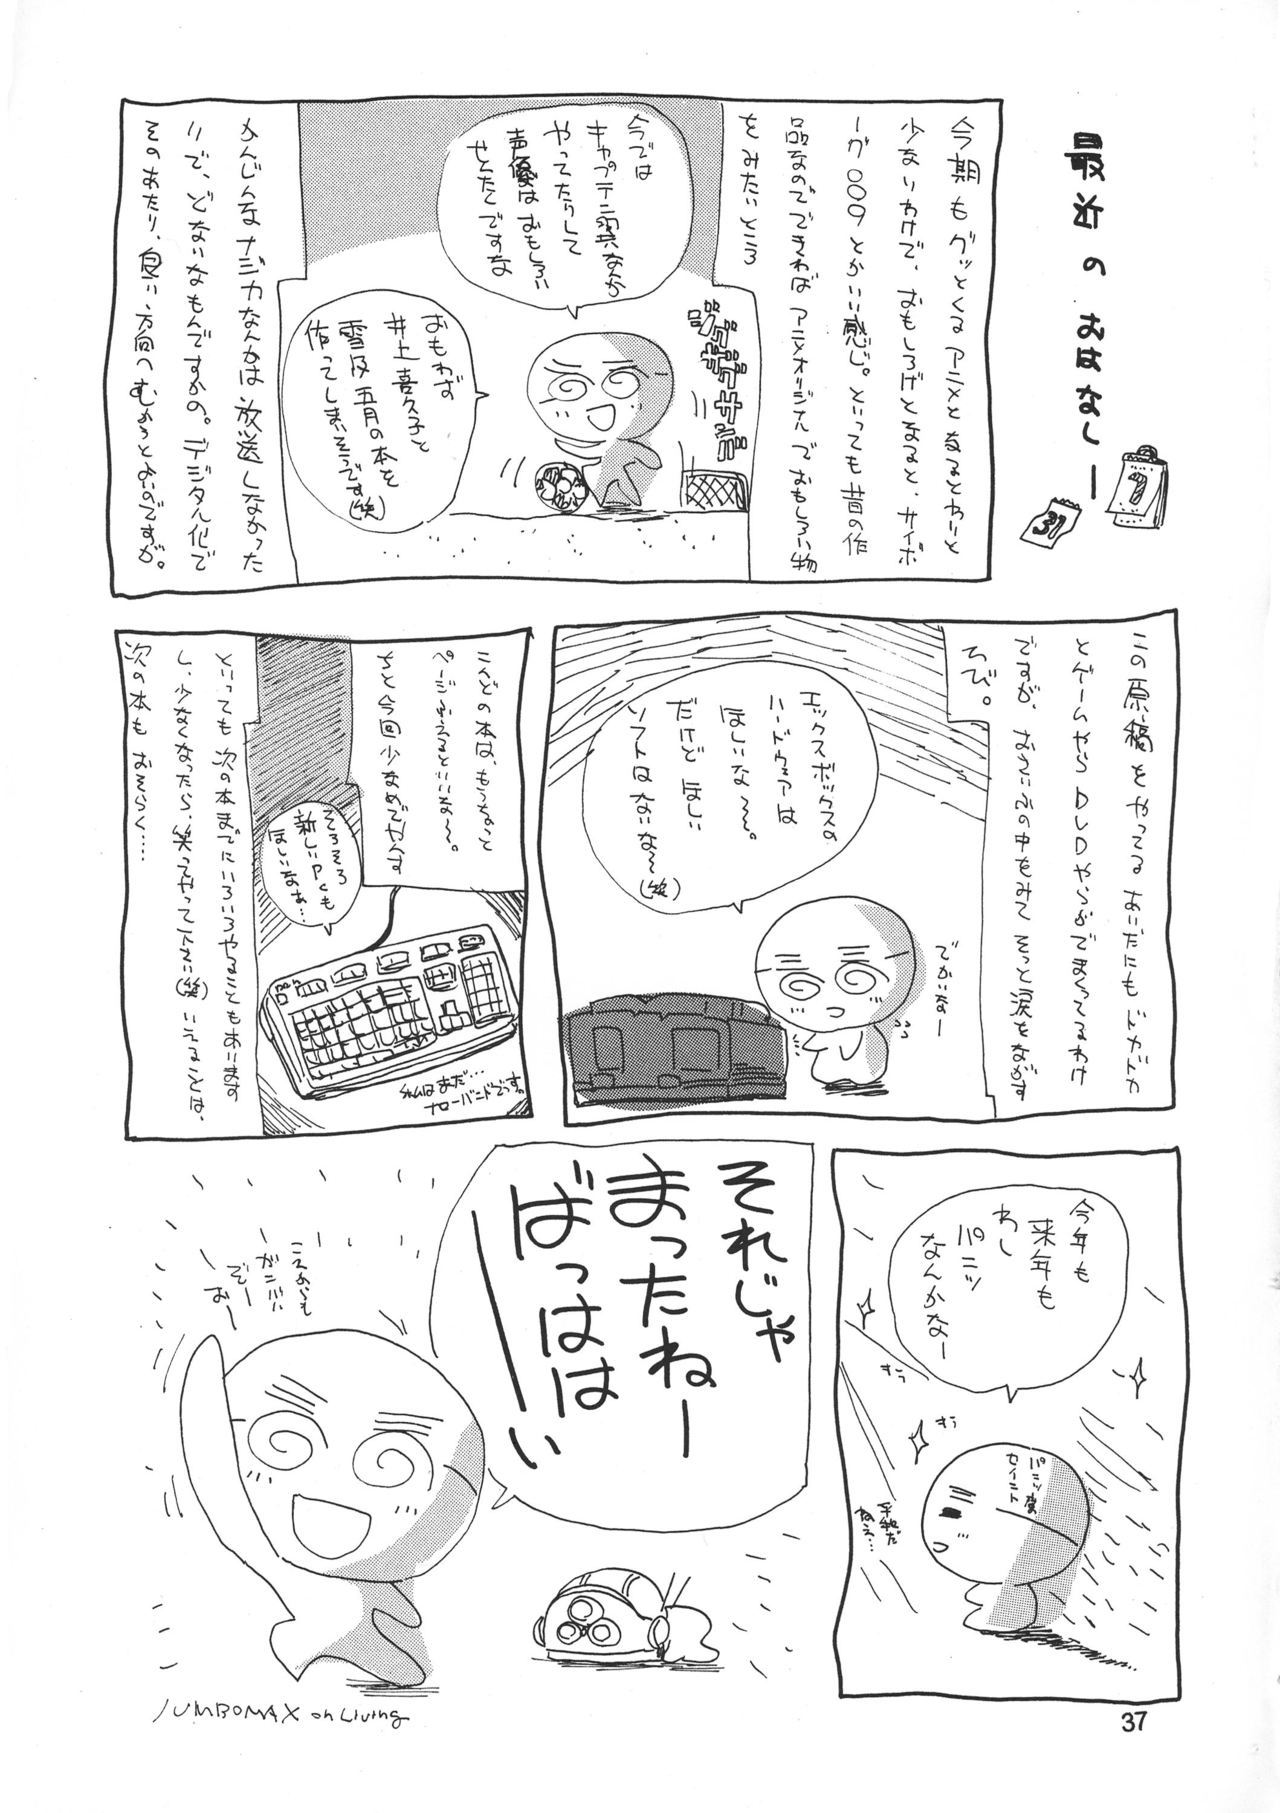 最近のおはなしー
7
31
今期もグッとくるアニメとなるとわりと
少ないわけで、おもしろげとなると、サイボ
ーグ009とかいい感じ。といっても昔の作
品なのでできればアニメオリジナルでおもしろい物
をみたいところ
今では
キャプテン翼なんか
やってたりして
声優はおもしろい
せんたくですな
おもわず
井上喜久子と
雪乃五月の本を
作ってしまいそうです(笑)
かんじんなナジカなんかは放送しなかった
りで、どないなもんですかの。デジタル化で
そのあたり、良い方向へむかうとよいのですが。
この原稿をやってるあいだにもドカドカ
とゲームやらDVDやらがでまくってるわけ
ですが、おさいふの中をみてそっと涙をながす
日び。
エックスボックスの
ハードウェアは
ほしいな〜。
だけどほしい
ソフトはないな〜(笑)
でかいなー
こんどの本は、もうちょっと
ページふえるといいな〜。
ちと今回少なめでやんす
そろそろ
新しいPCも
ほしいなぁ…
といっても次の本までにいろいろやることもあります
し、少なくなったら、笑ってやって下さい(笑)いえることは、
次の本もおそらく……
まだ…
ナローバンドでっす。
今年も
来年も
わし
パンツ
なんかなー
すうっ
すう
パンツ
セイント
平和だ
ねぇ…
それじゃ
まったねー
ばっははーい
これからも
ガンバル
ぞー
おー
JUMBOMAX on Living
37